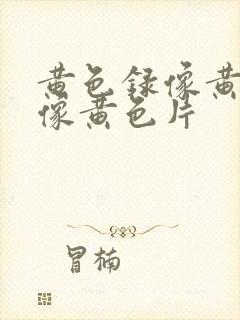 黄色録像黄
像黄色片
冒楠